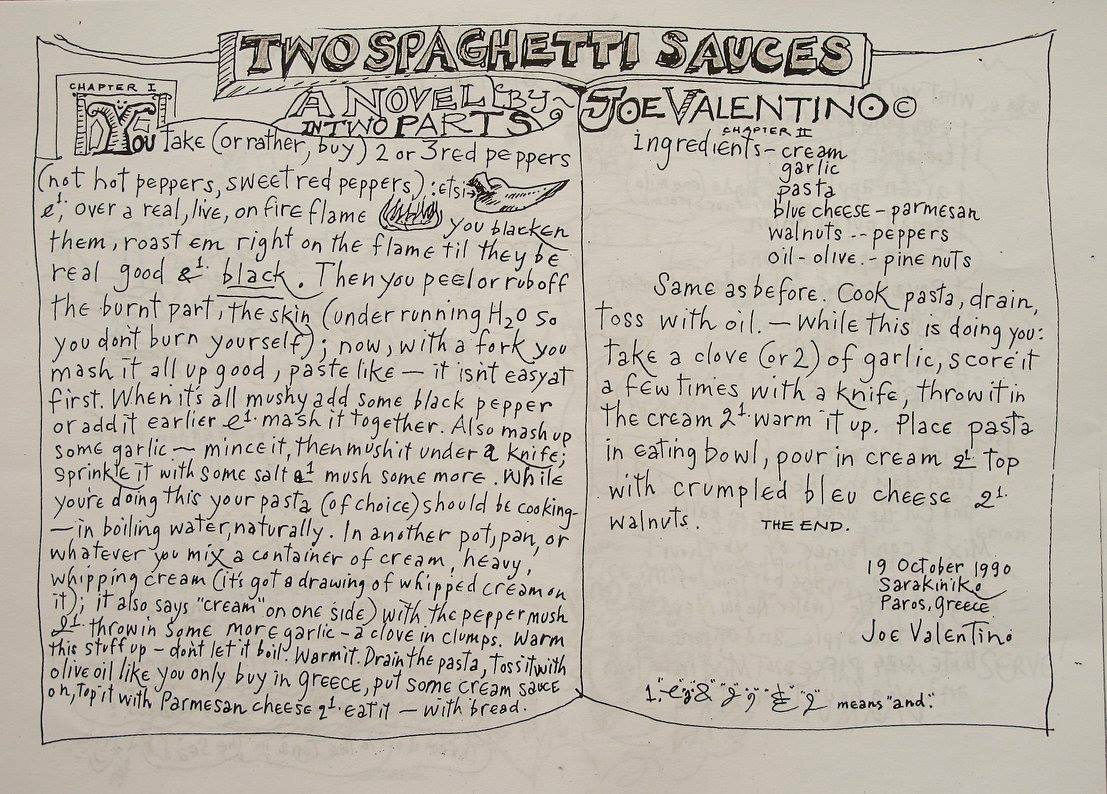 TWO SPAGHETTI SAUCES
A NOVEL BY JOE VALENTINO ©
IN TWO PARTS
CHAPTER I
You take (or rather, buy) 2 or 3 red peppers
(not hot peppers, sweet red peppers) :etsi→
&¹; over a real, live, on fire flame
you blacken
them, roast em right on the flame til they be
real good &¹· black. Then you peel or rub off
the burnt part, the skin (under running H₂O so
you dont burn yourself); now, with a fork you
mash it all up good, paste like — it isnt easy at
first. When it's all mushy add some black pepper
or add it earlier &¹· mash it together. Also mash up
some garlic — mince it, then mush it under a knife;
sprinkle it with some salt &¹ mush some more. While
you're doing this your pasta (of choice) should be cooking-
— in boiling water, naturally. In another pot, pan, or
whatever you mix a container of cream, heavy,
whipping cream (it's got a drawing of whipped cream on
it); it also says "cream" on one side) with the pepper mush
&¹· throw in some more garlic - a clove in clumps. Warm
this stuff up - dont let it boil. Warm it. Drain the pasta, toss it with
olive oil like you only buy in Greece, put some cream sauce
on, top it with Parmesan cheese &¹· eat it — with bread.
CHAPTER II
ingredients - cream
garlic
pasta
blue cheese - parmesan
walnuts -- peppers
oil - olive. - pine nuts
Same as before. Cook pasta, drain,
toss with oil. — While this is doing you:
take a clove (or 2) of garlic, score it
a few times with a knife, throw it in
the cream &¹· warm it up. Place pasta
in eating bowl, pour in cream &¹· top
with crumpled bleu cheese &¹·
walnuts. THE END.
19 October 1990
Sarakiniko
Paros, Greece
Joe Valentino
1. "&" "&" "&" "&" "&" means "and".